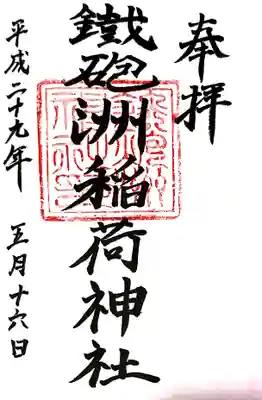 奉拝
鐵砲洲稲荷神社
平成二十九年 五月十六日